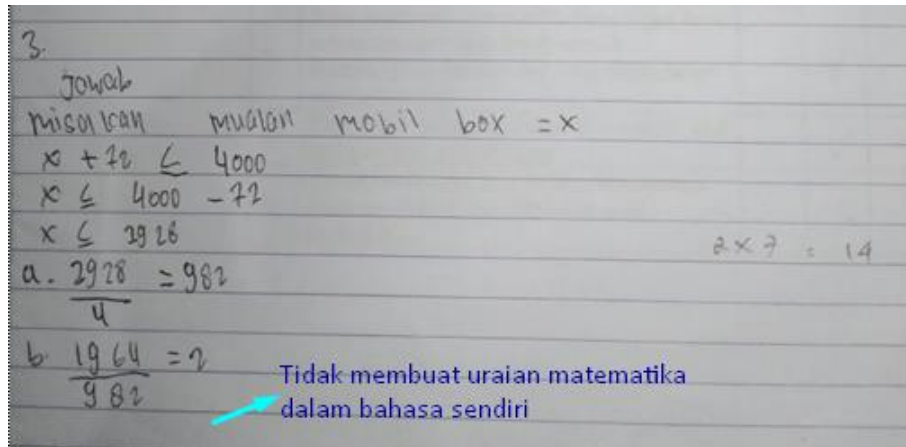 3.
Jawab
misalkan mualan mobil box = x
x + 72 ≤ 4000
x ≤ 4000 - 72
x ≤ 3926
2 x 7 = 14
a. 3928 = 982
4
b. 1964 = 2
982
Tidak membuat uraian matematika
dalam bahasa sendiri